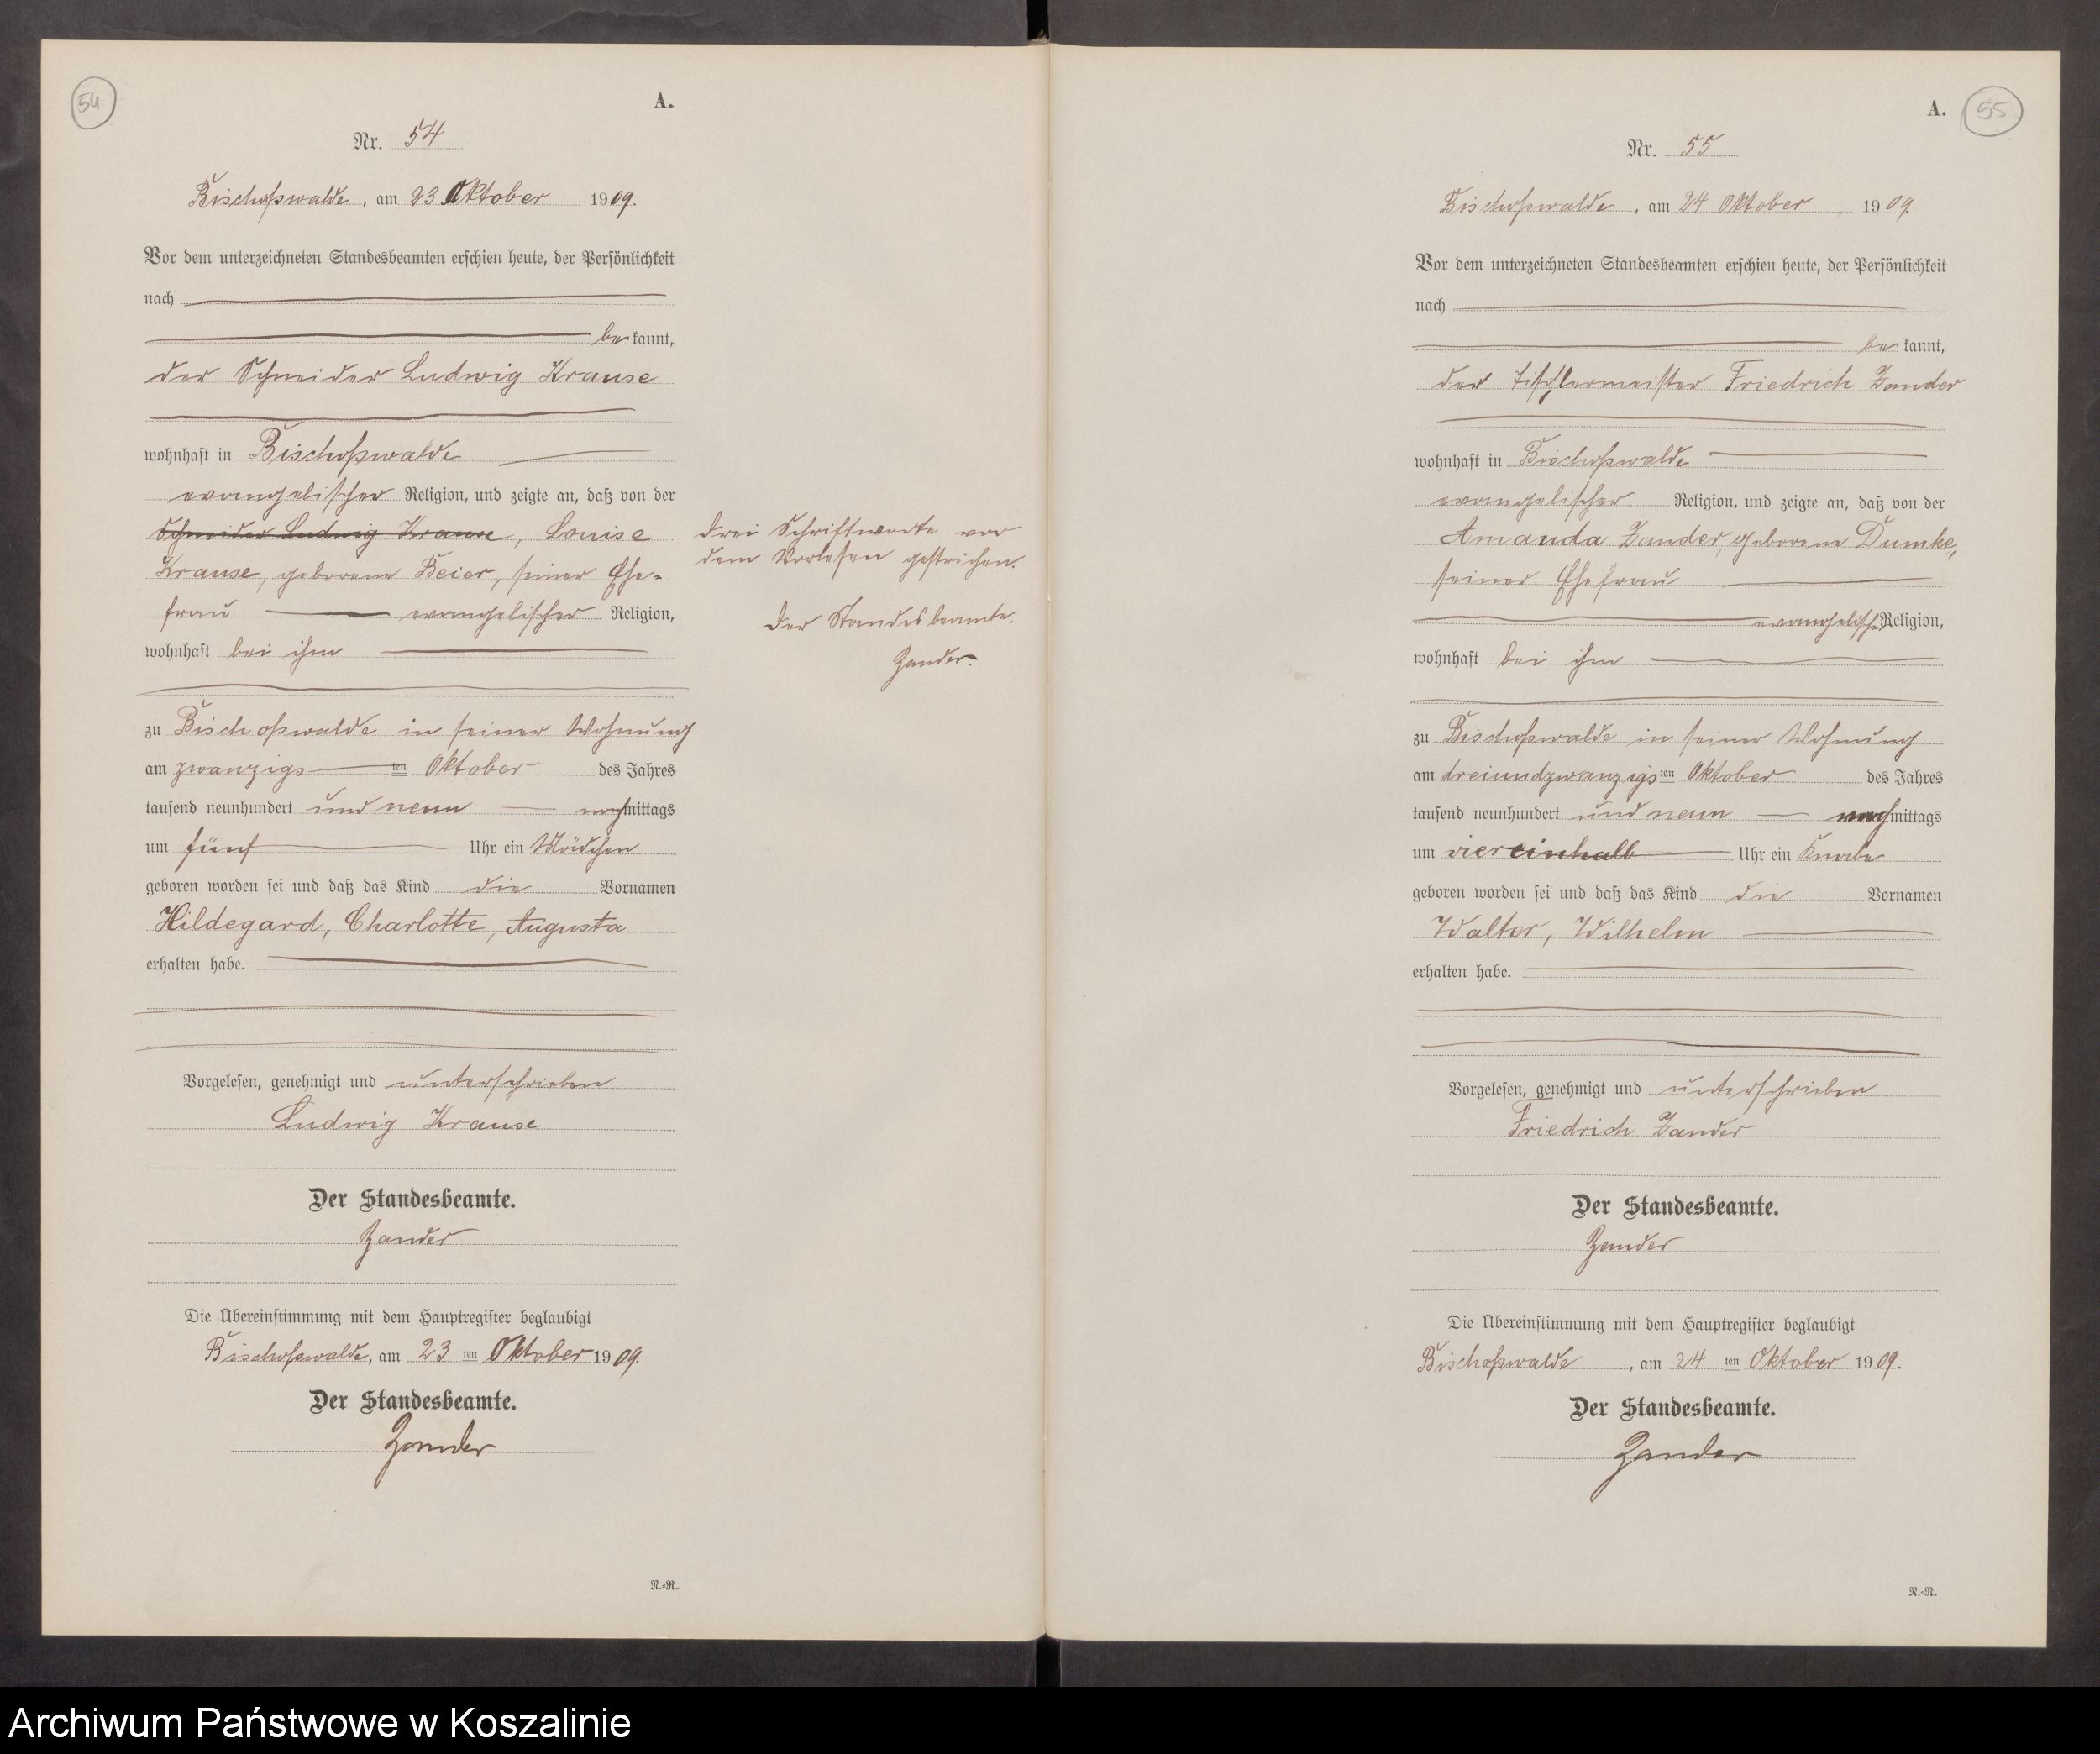 54
A.
Nr. 54
Bischofswalde, am 23 Oktober 1909.
Vor dem unterzeichneten Standesbeamten erschien heute, der Persönlichkeit
nach
be kannt,
der Schneider Ludwig Krause
wohnhaft in Bischofswalde
evangelischer Religion, und zeigte an, daß von der
Schneider Ludwig Krause, Louise
Krause, geborene Beier, seiner Ehe-
frau evangelischer Religion,
wohnhaft bei ihm
zu Bischofswalde in seiner Wohnung
am zwanzigs ten Oktober des Jahres
tausend neunhundert und neun nachmittags
um fünf Uhr ein Mädchen
geboren worden sei und daß das Kind die Vornamen
Hildegard, Charlotte, Augusta
erhalten habe.
Vorgelesen, genehmigt und unterschrieben
Ludwig Krause
Der Standesbeamte.
Zander
Die Übereinstimmung mit dem Hauptregister beglaubigt
Bischofswalde, am 23 ten Oktober 1909.
Der Standesbeamte.
Zander
N.=R.
Drei Schriftworte vor
dem Vorlesen gestrichen.
Der Standesbeamte.
Zander.
A.
55
Nr. 55
Bischofswalde, am 24 Oktober 1909.
Vor dem unterzeichneten Standesbeamten erschien heute, der Persönlichkeit
nach
be kannt,
der Tischlermeister Friedrich Zander
wohnhaft in Bischofswalde
evangelischer Religion, und zeigte an, daß von der
Amanda Zander, geborene Dumke,
seiner Ehefrau
evangelischer Religion,
wohnhaft bei ihm
zu Bischofswalde in seiner Wohnung
am dreiundzwanzigs ten Oktober des Jahres
tausend neunhundert und neun nachmittags
um viereinhalb Uhr ein Knabe
geboren worden sei und daß das Kind die Vornamen
Walter, Wilhelm
erhalten habe.
Vorgelesen, genehmigt und unterschrieben
Friedrich Zander
Der Standesbeamte.
Zander
Die Übereinstimmung mit dem Hauptregister beglaubigt
Bischofswalde, am 24 ten Oktober 1909.
Der Standesbeamte.
Zander
N.=R.
Archiwum Państwowe w Koszalinie